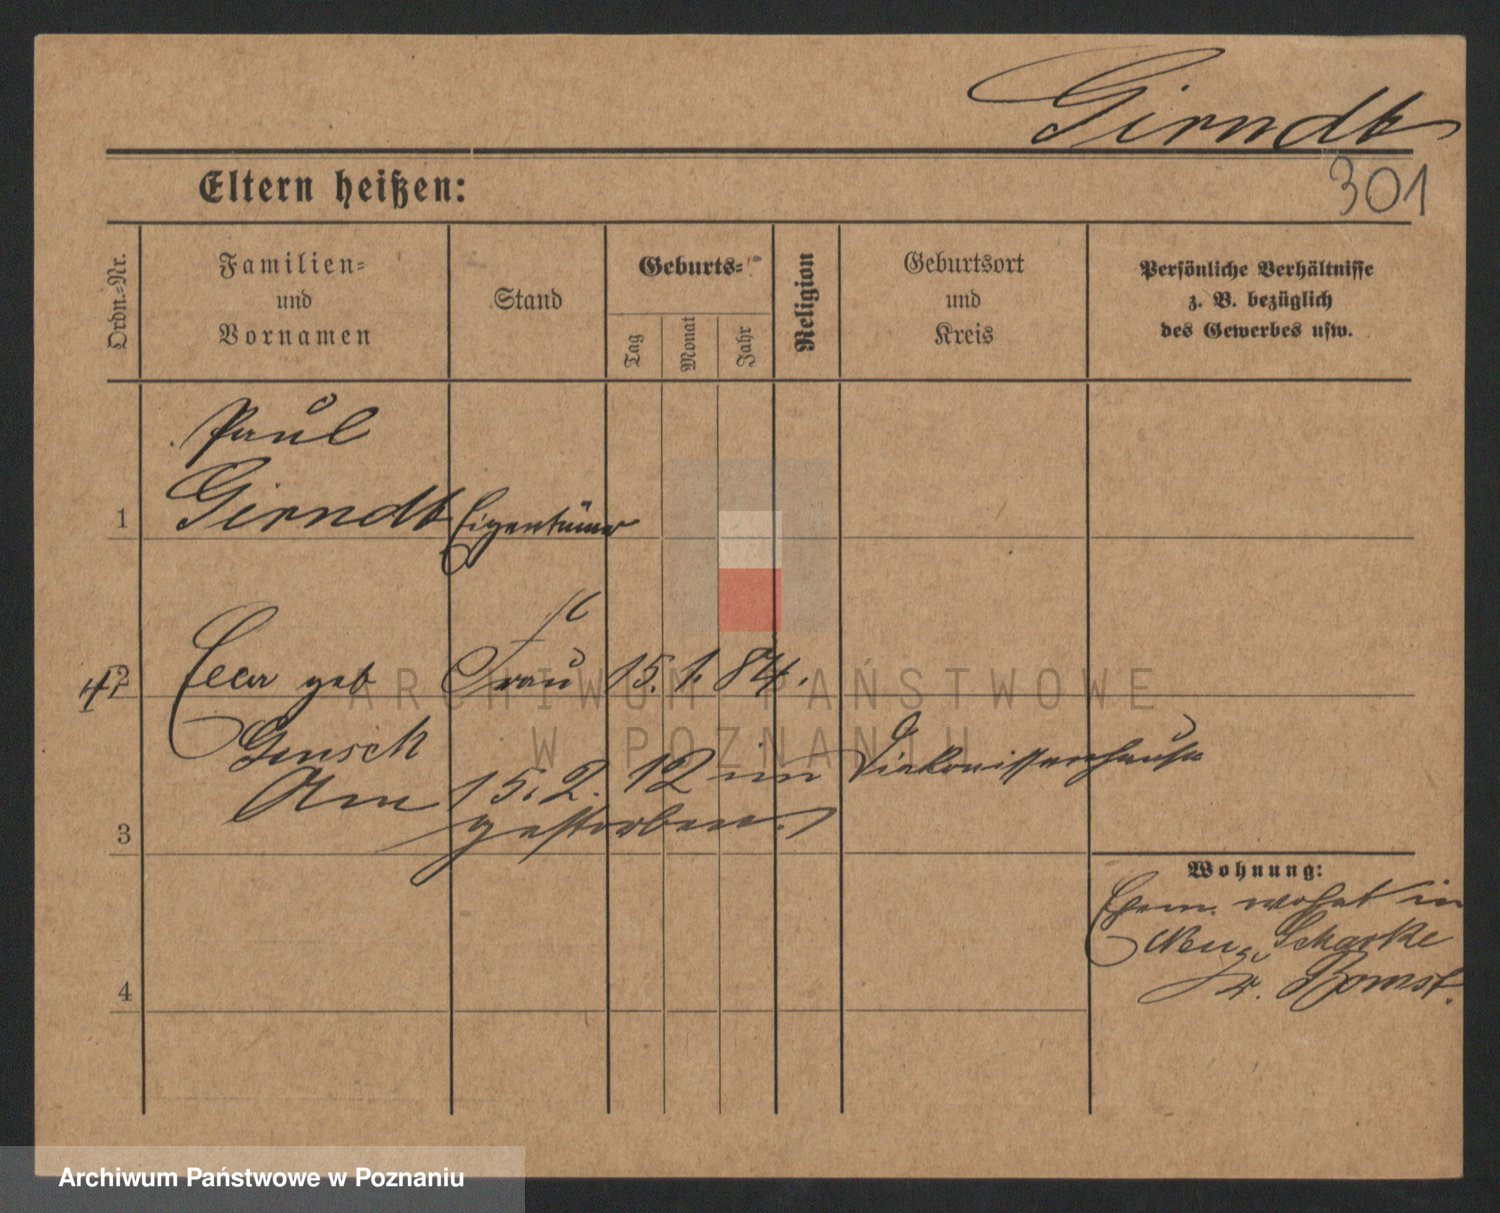 Girndt
301
Eltern heißen:
Ordn.-Nr.
Familien-
und
Vornamen
Stand
Geburts-
Tag
Monat
Jahr
Religion
Geburtsort
und
Kreis
Persönliche Verhältnisse
z. B. bezüglich
des Gewerbes usw.
Paul
1 Girndt Eigentümer
2 geb Frau 15. 1. 84.
Gensch
Am 15. 2. 12 im Diakonissenhause
3 gestorben.
Wohnung:
Ehem. wohnt in
Neu Scharke
Kr. Bomst.
4
ARCHIWUM PAŃSTWOWE
W POZNANIU
Archiwum Państwowe w Poznaniu